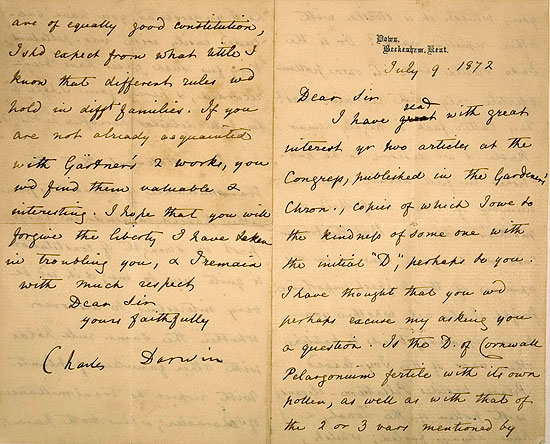 Down,
Beckenham, Kent.
July 9. 1872
Dear Sir
read
I have great with great
interest yr two articles at the
Congress, published in the Gardeners'
Chron., copies of which I owe to
the kindness of some one with
the initial "D", perhaps to you.
I have thought that you wd
perhaps excuse my asking you
a question. Is the D. of Cornwall
Pelargonium fertile with its own
pollen, as well as with that of
the 2 or 3 vars mentioned by
are of equally good constitution,
I shd expect from what little I
know that different rules wd
hold in difft families. If you
are not already acquainted
with Gärtner's 2 works, you
wd find them valuable &
interesting. I hope that you will
forgive the liberty I have taken
in troubling you, & I remain
with much respect
Dear Sir
yours faithfully
Charles Darwin